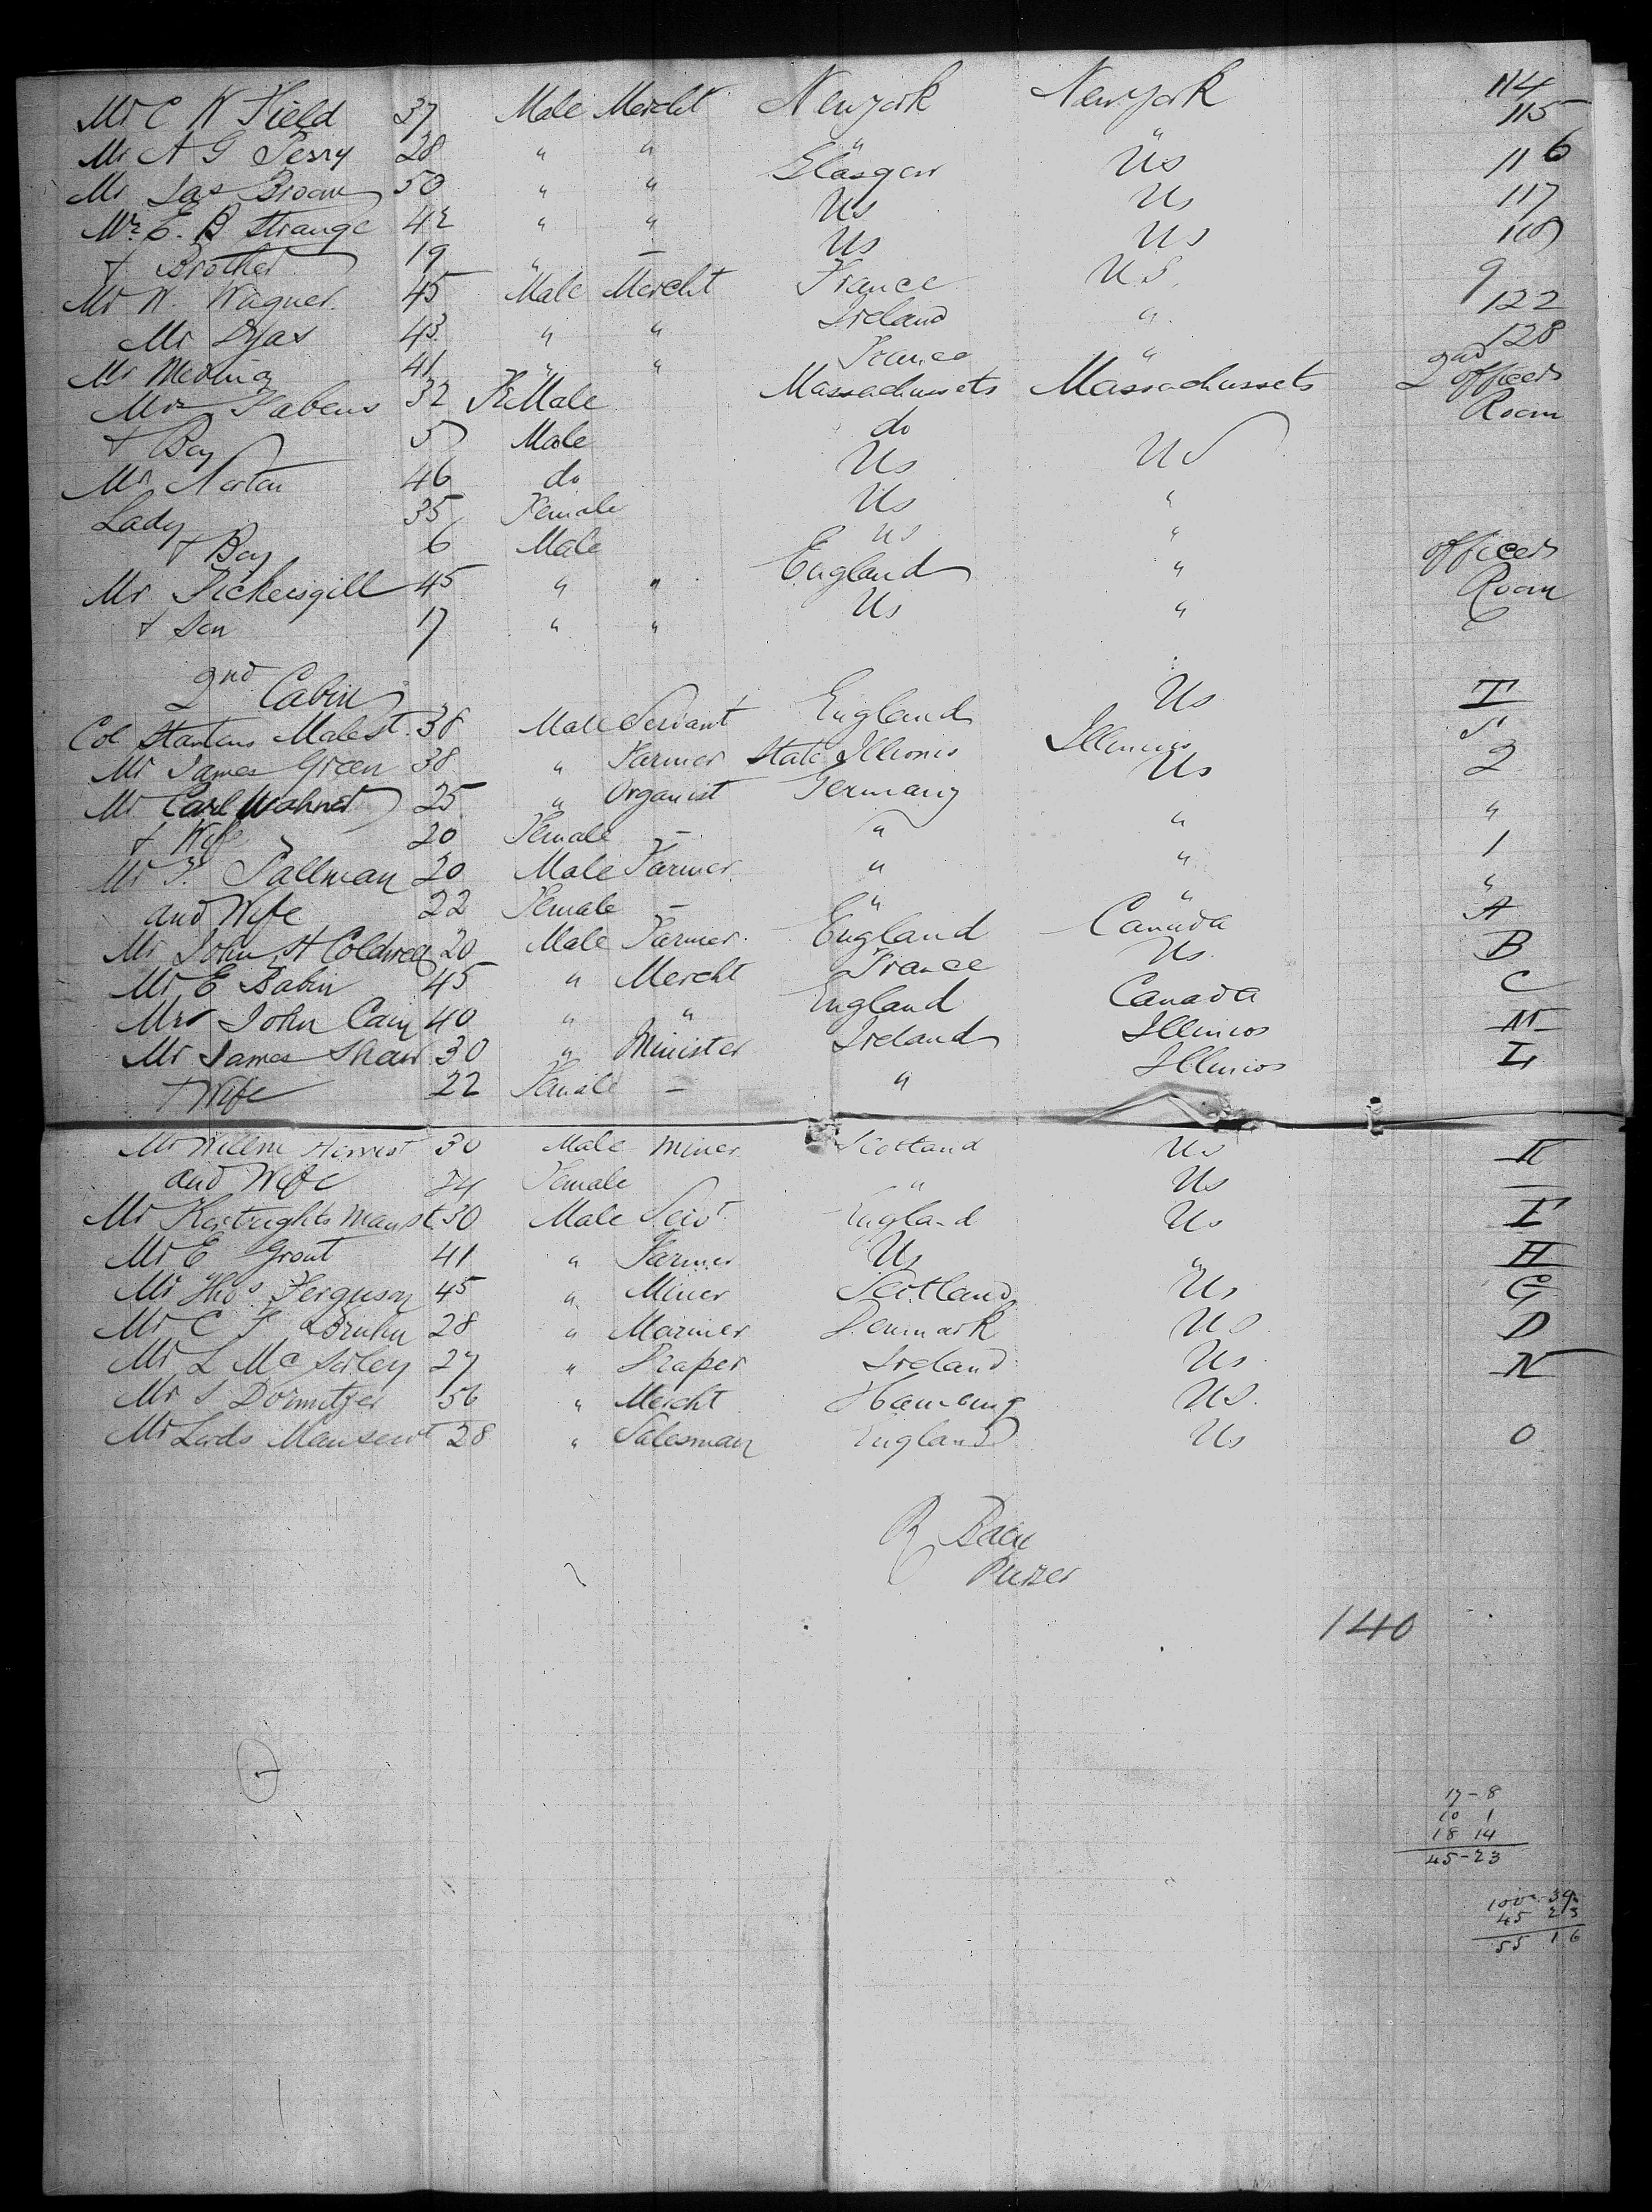 Mr C W Field 37 Male Mercht Newyork Newyork 114
Mr A G Perry 28 " " " " 115
Mr Jas Brown 50 " " Glasgow Us 116
Mr. E. B Strange 42 " " Us Us 117
& Brother 19 " — Us Us 118
Mr W. Wagner 45 Male Mercht France US. 9
Mr Dyas 43 " " Ireland " 122
Mr Medina 41 " " France " 128
Mrs 32 FeMale Massachussets Massachussets 2nd officers
& Boy 5 Male do Room
Mr Norton 46 do Us US
Lady 35 Female Us "
& Boy 6 Male us "
Mr Pickersgill 45 " " England " officers
& Son 17 " " Us " Room
2nd Cabin
Col Stantons Male St. 38 Male Servant England Us T
Mr James Green 38 " Farmer State Illionis Illinois S
Mr Carl Wahner 25 " Organist Germany Us 2
& Wife 20 Female — " " "
Mr F. Pallman 20 Male Farmer " " 1
and Wife 22 Female — " " "
Mr John H Coldwell 20 Male Farmer England Canada A
Mr E Babin 45 " Mercht France Us B
Mr John Cain 40 " " England Canada C
Mr James Shaw 30 " Minister Ireland Illinios M
& Wife 22 Female — " Illinios L
Mr Willm Harvist 30 Male Miner Scotland Us K
and Wife 24 Female " Us
Mr Kortrights Manst 30 Male Servt England Us I
Mr E Grout 41 " Farmer Us " H
Mr Thos Ferguson 45 " Miner Scotland Us G
Mr C F Bruhn 28 " Mariner Denmark US D
Mr L Mc Sorley 27 " Draper Ireland Us N
Mr S Dormitzer 56 " Mercht Hamburg US.
Mr Lords Manservt 28 " Salesman England Us O
R Bain
Purser
140
17 - 8
10 1
18 14
45 - 23
100 - 39
45 23
55 16